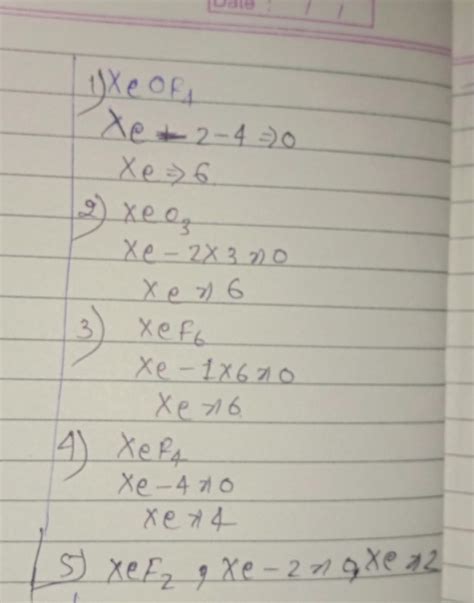 Date : / /
1) XeOF4
Xe - 2-4 ⇒ 0
Xe ⇒ 6
2) XeO3
Xe - 2x3 ⇒ 0
Xe ⇒ 6
3) XeF6
Xe - 1x6 ⇒ 0
Xe ⇒ 6
4) XeF4
Xe - 4 ⇒ 0
Xe ⇒ 4
5) XeF2 , Xe - 2 ⇒ 0, Xe ⇒ 2